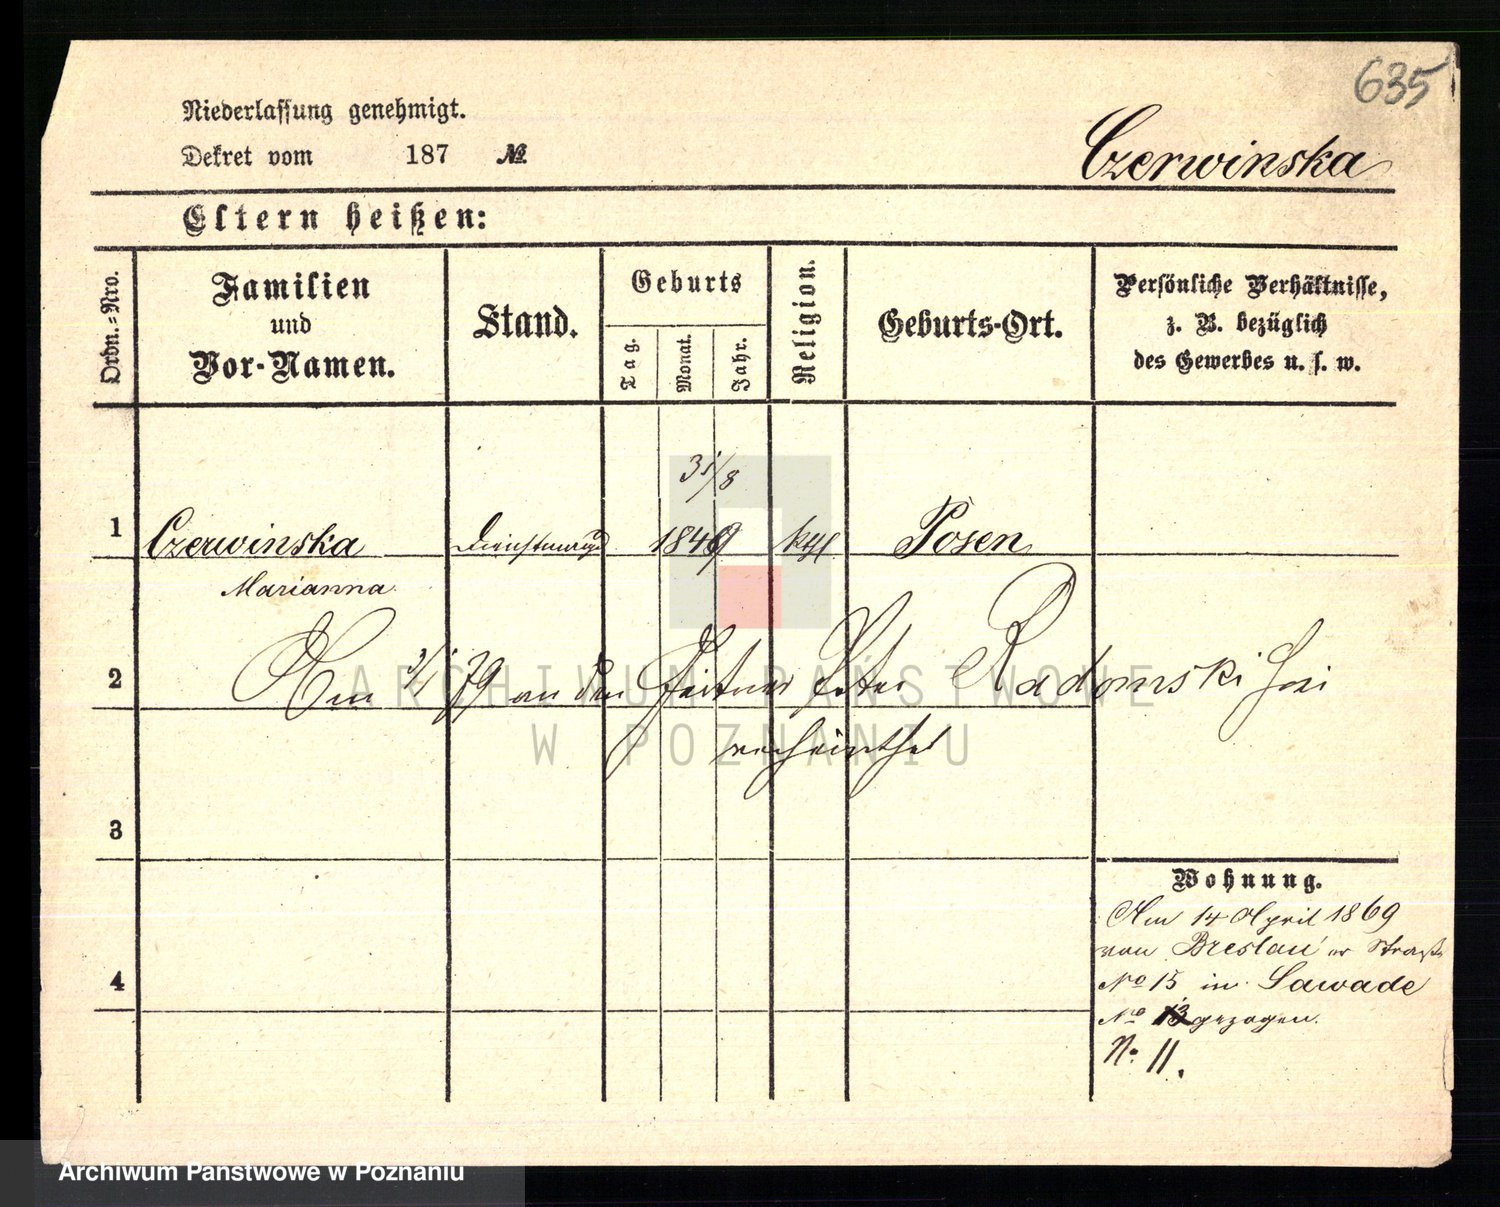 635
Niederlassung genehmigt.
Dekret vom 187 №
Czerwinska
Eltern heißen:
Ordn.-Nro.
Familien
und
Vor-Namen.
Stand.
Geburts
Tag.
Monat.
Jahr.
Religion.
Geburts-Ort.
Persönliche Verhältnisse,
z. B. bezüglich
des Gewerbes u. s. w.
31/8
1 Czerwinska Dienstmagd 1849 kth Posen
Marianna
2 Am 79 an den Peter Radomski
ARCHIWUM PAŃSTWOWE
W POZNANIU
3
Wohnung.
Am 14 April 1869
von Breslau'er Straße
No 15 in Sawade
4
No 13 gezogen.
No 11.
Archiwum Państwowe w Poznaniu